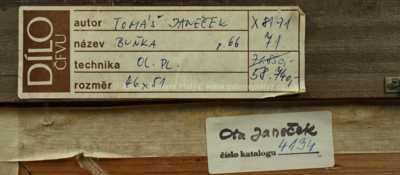 DÍLO
ČFVU
autor TOMÁŠ JANEČEK X8171
název BUŇKA , 66 71
technika OL. PL.
rozměr 46 x 51 58.740,-
Ota Janeček
číslo katalogu 4194